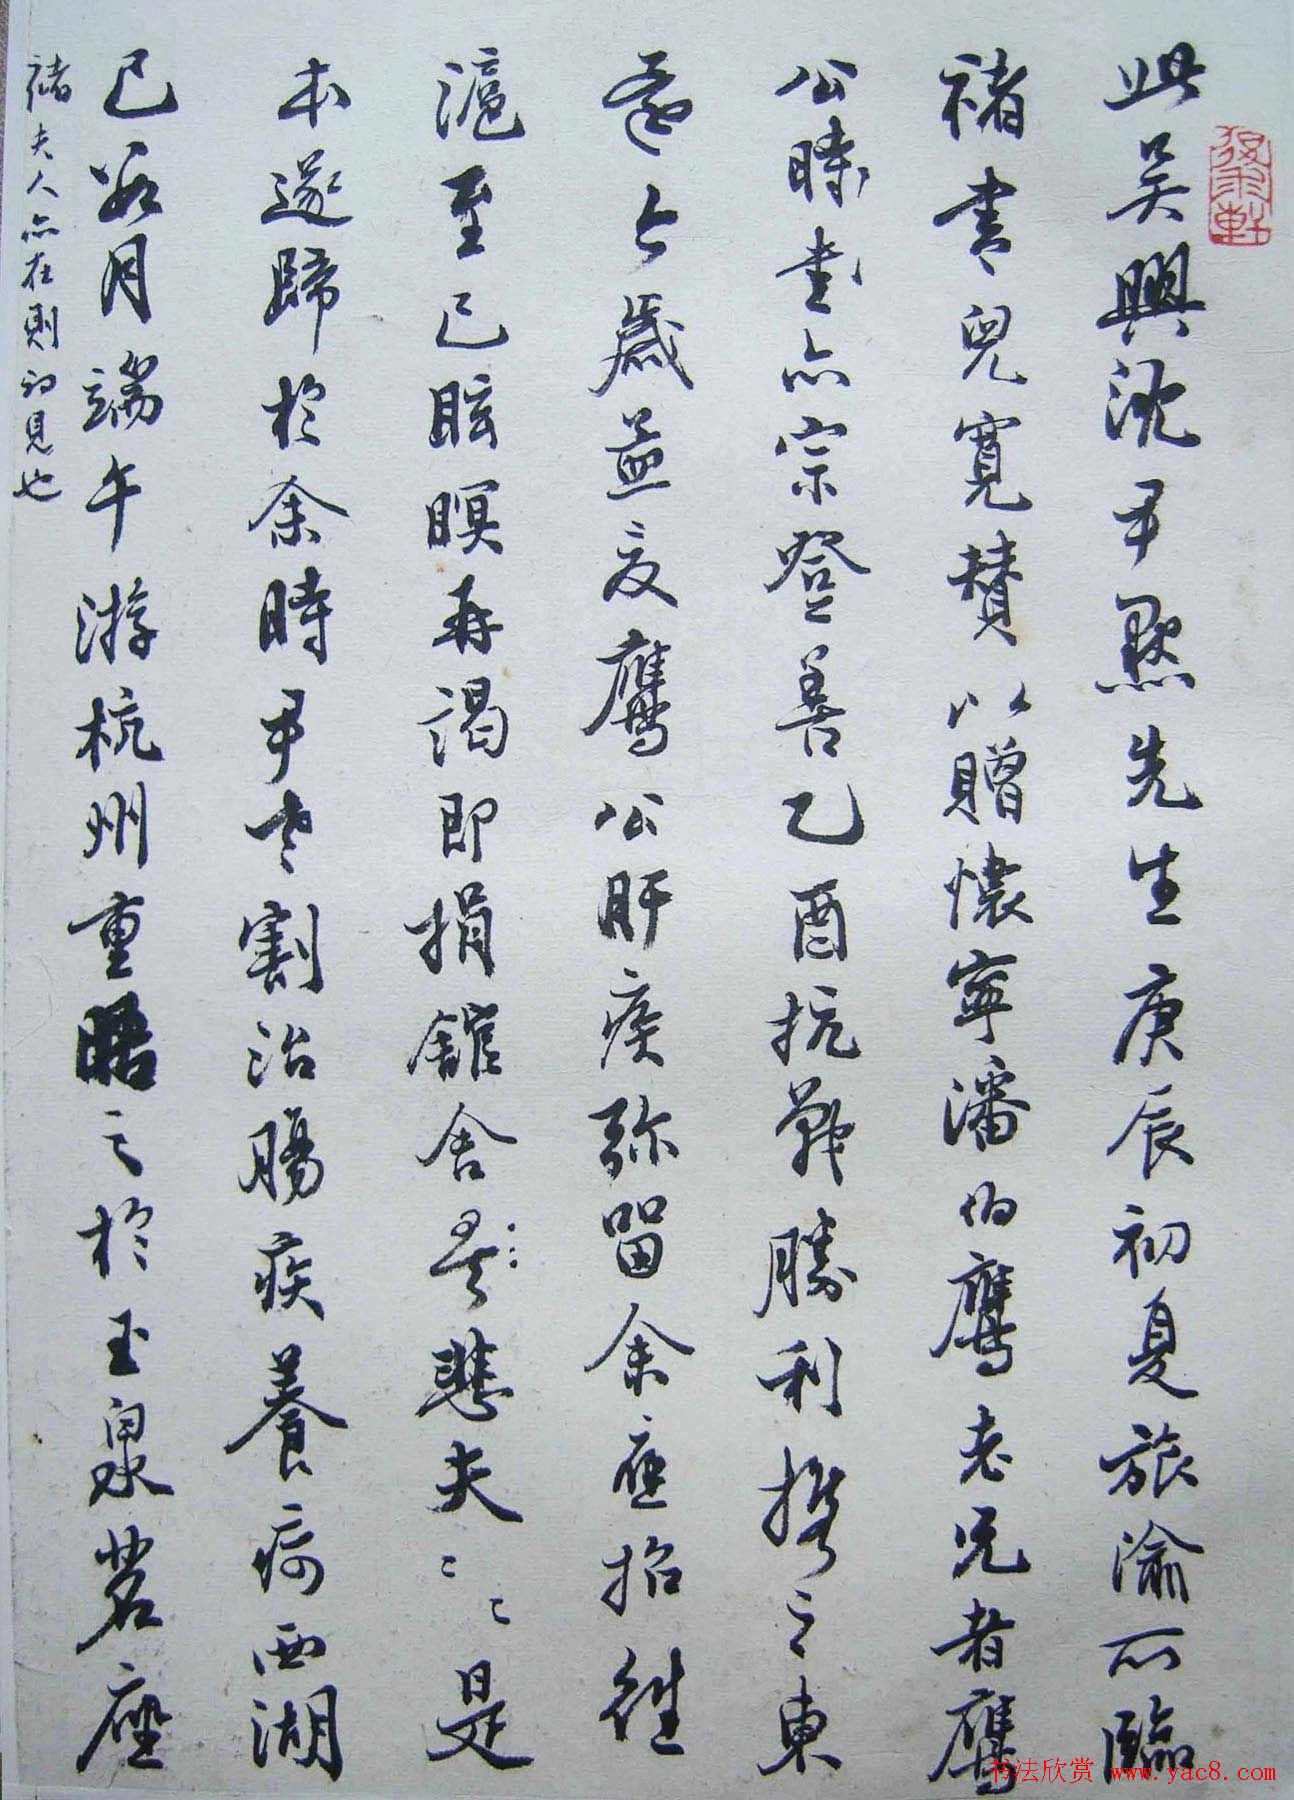 此吴興沈尹默先生庚辰初夏旅渝所臨
褚書兒寬贊以贈懷寧潘伯鷹老兄者鷹
公時書亦宗登善乙酉抗戰勝利携之東
今歲並友鷹公肝疾弥留余應招往
滬至已眩瞑再謁即捐館舍悲夫是
本遂歸於余時尹老割治腸疾養疴西湖
已数月端午游杭州重晤之於玉泉茗座
褚夫人亦在則初見也
书法欣赏 www.yac8.com